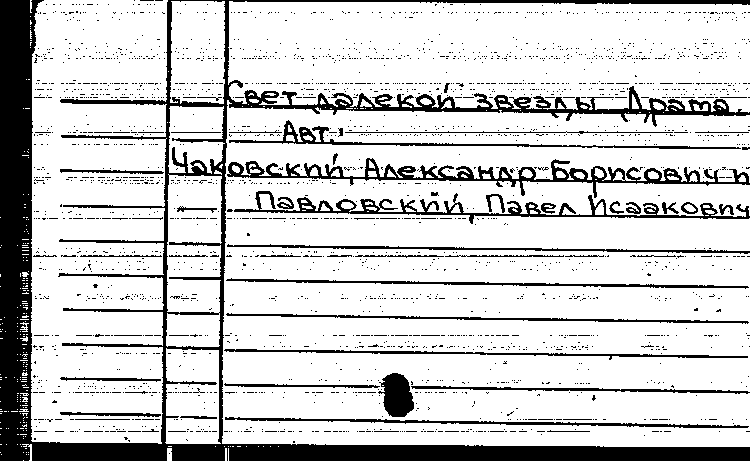 Свет далекой звезды. Драма.
Авт.:
Чаковский, Александр Борисович и
Павловский, Павел Исаакович